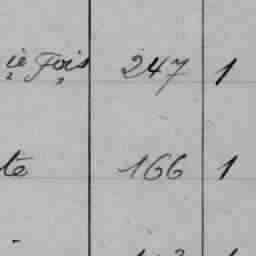 Fois 247 1
te 166 1